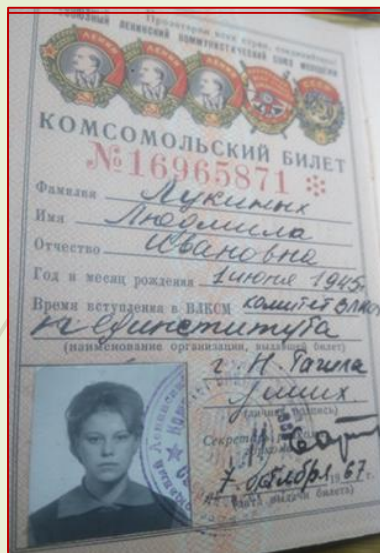 Пролетарии всех стран, соединяйтесь!
ЛЕНИНСКИЙ КОММУНИСТИЧЕСКИЙ СОЮЗ МОЛОДЕЖИ
КОМСОМОЛЬСКИЙ БИЛЕТ
№ 16965871
Фамилия Лукиных
Имя Людмила
Отчество Ивановна
Год и месяц рождения 1 июня 1945г
Время вступления в ВЛКСМ комитет ВЛКСМ
пединститута
(наименование организации, выдавшей билет)
г. Н. Тагила
(личная подпись)
Секретарь
7 октября 1967 г.
(дата выдачи билета)